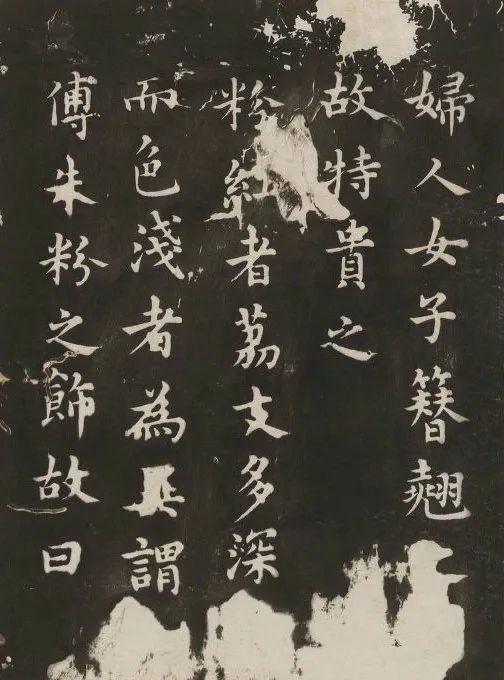 婦人女子簪翹
故特貴之
粉紅者荔支多深
而色淺者為謂
傅朱粉之飾故曰